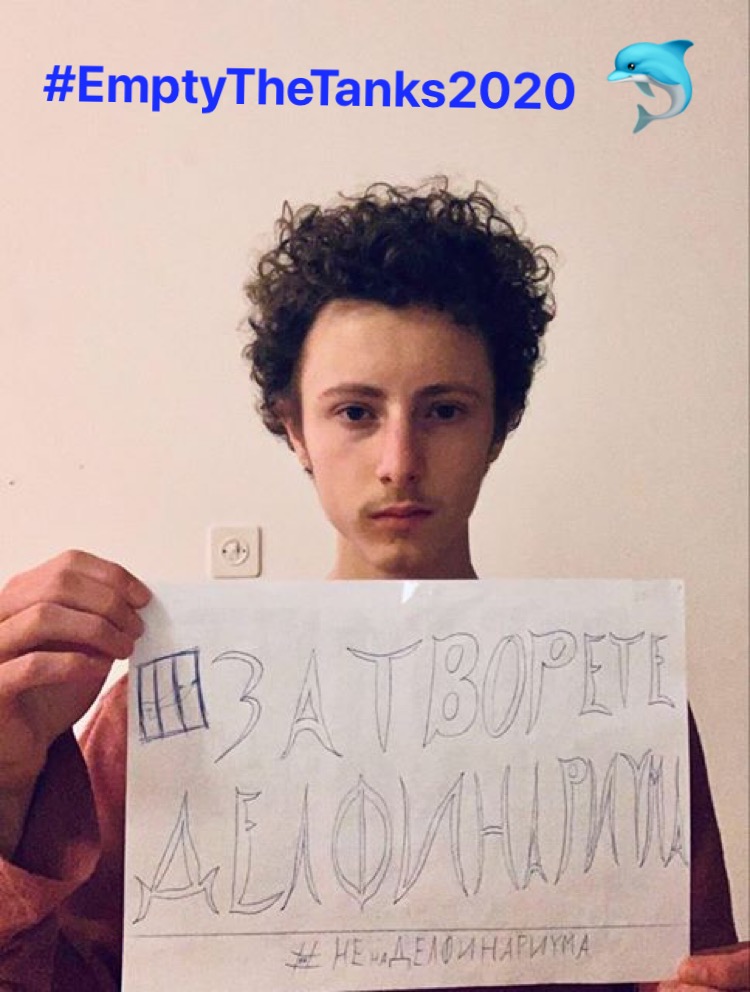 #EmptyTheTanks2020
ЗАТВОРЕТЕ
ДЕЛФИНАРИУМА
# НЕ НА ДЕЛФИНАРИУМА